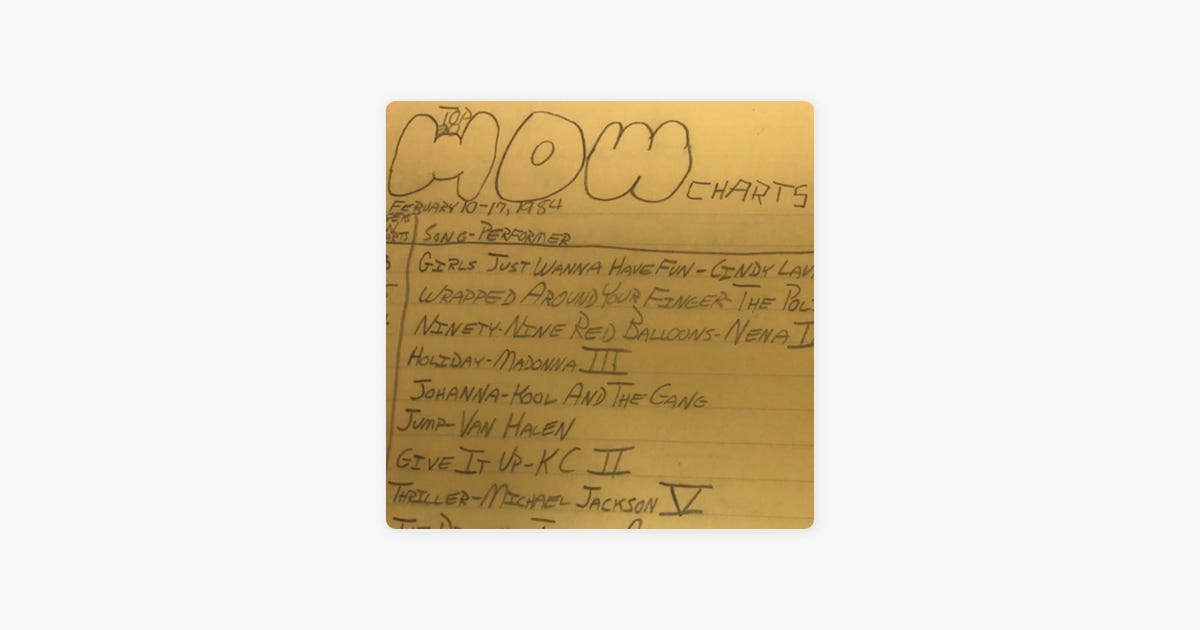 TOP
WOW CHARTS
FEBUARY 10-17, 1984
SONG-PERFORMER
GIRLS JUST WANNA HAVE FUN-CINDY LAU
WRAPPED AROUND YOUR FINGER-THE POL
NINETY-NINE RED BALLOONS-NENA I
HOLIDAY-MADONNA III
JOHANNA-KOOL AND THE GANG
JUMP-VAN HALEN
GIVE IT UP-KC II
THRILLER-MICHAEL JACKSON V